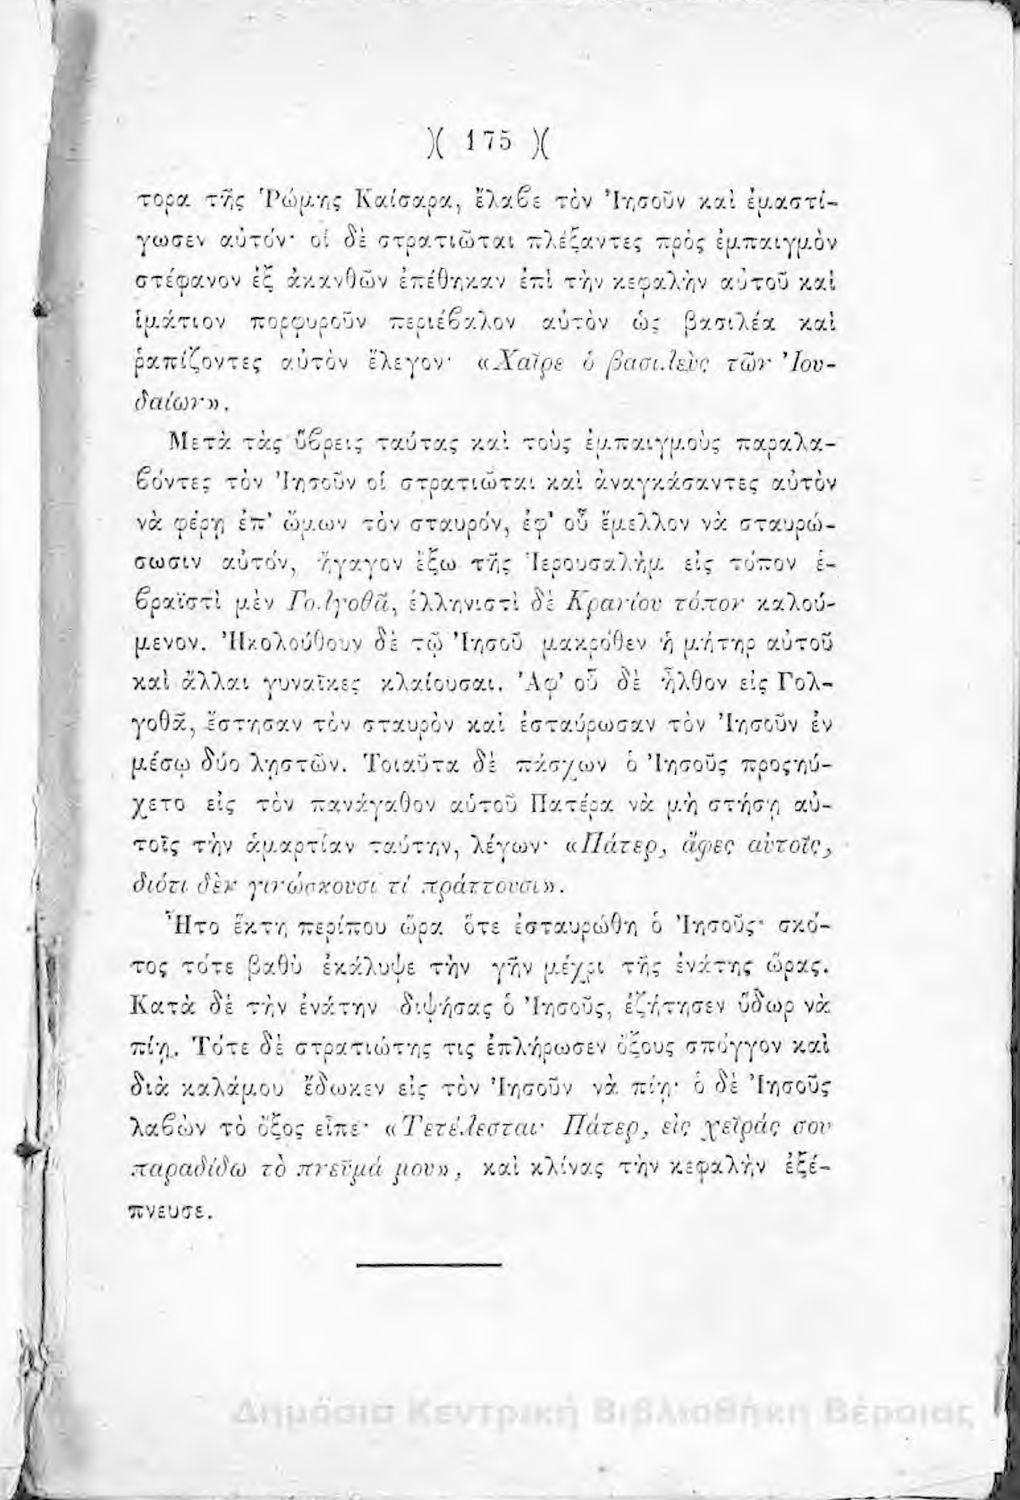 )( 175 )(
τορα τῆς Ῥώμης Καίσαρα, ἔλαβε τὸν Ἰησοῦν καὶ ἐμαστί-
γωσεν αὐτόν· οἱ δὲ στρατιῶται πλέξαντες πρὸς ἐμπαιγμὸν
στέφανον ἐξ ἀκανθῶν ἐπέθηκαν ἐπὶ τὴν κεφαλὴν αὐτοῦ καὶ
ἱμάτιον πορφυροῦν περιέβαλον αὐτὸν ὡς βασιλέα καὶ
ῥαπίζοντες αὐτὸν ἔλεγον· «Χαῖρε ὁ βασιλεὺς τῶν Ἰου-
δαίων».
Μετὰ τὰς ὕβρεις ταύτας καὶ τοὺς ἐμπαιγμοὺς παραλα-
βόντες τὸν Ἰησοῦν οἱ στρατιῶται καὶ ἀναγκάσαντες αὐτὸν
νὰ φέρῃ ἐπ' ὤμων τὸν σταυρόν, ἐφ' οὗ ἔμελλον νὰ σταυρώ-
σωσιν αὐτόν, ἤγαγον ἔξω τῆς Ἱερουσαλὴμ εἰς τόπον ἑ-
βραϊστὶ μὲν Γολγοθᾶ, ἑλληνιστὶ δὲ Κρανίου τόπον καλού-
μενον. Ἠκολούθουν δὲ τῷ Ἰησοῦ μακρόθεν ἡ μήτηρ αὐτοῦ
καὶ ἄλλαι γυναῖκες κλαίουσαι. Ἀφ' οὗ δὲ ἦλθον εἰς Γολ-
γοθᾶ, ἔστησαν τὸν σταυρὸν καὶ ἐσταύρωσαν τὸν Ἰησοῦν ἐν
μέσῳ δύο λῃστῶν. Τοιαῦτα δὲ πάσχων ὁ Ἰησοῦς προςηύ-
χετο εἰς τὸν πανάγαθον αὐτοῦ Πατέρα νὰ μὴ στήσῃ αὐ-
τοῖς τὴν ἁμαρτίαν ταύτην, λέγων· «Πάτερ, ἄφες αὐτοῖς,
διότι δὲν γινώσκουσι τί πράττουσι».
Ἦτο ἕκτη περίπου ὥρα ὅτε ἐσταυρώθη ὁ Ἰησοῦς· σκό-
τος τότε βαθὺ ἐκάλυψε τὴν γῆν μέχρι τῆς ἐνάτης ὥρας.
Κατὰ δὲ τὴν ἐνάτην διψήσας ὁ Ἰησοῦς, ἐζήτησεν ὕδωρ νὰ
πίῃ. Τότε δὲ στρατιώτης τις ἐπλήρωσεν ὄξους σπόγγον καὶ
διὰ καλάμου ἔδωκεν εἰς τὸν Ἰησοῦν νὰ πίῃ· ὁ δὲ Ἰησοῦς
λαβὼν τὸ ὄξος εἶπε· «Τετέλεσται· Πάτερ, εἰς χεῖράς σου
παραδίδω τὸ πνεῦμά μου», καὶ κλίνας τὴν κεφαλὴν ἐξέ-
πνευσε.
Δημόσια Κεντρική Βιβλιοθήκη Βέροιας